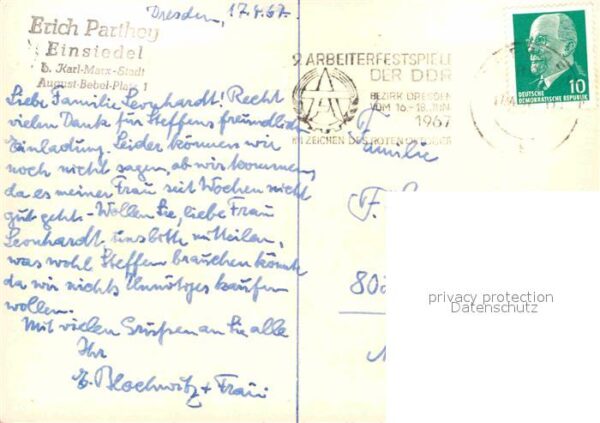 Dresden, 17.4.67.
Erich Parthey
Einsiedel
b. Karl-Marx-Stadt
August-Bebel-Platz 1
Liebe Familie Leonhardt! Recht
vielen Dank für Steffens freundliche
Einladung. Leider können wir
noch nicht sagen, ob wir kommen,
da es meiner Frau seit Wochen nicht
gut geht. - Wollen Sie, liebe Frau
Leonhardt, uns bitte mitteilen,
was wohl Steffen brauchen könnte
da wir nichts Unnötiges kaufen
wollen.
Mit vielen Grüssen an Sie alle
Ihr
E. Blochwitz + Frau
9. ARBEITERFESTSPIELE
DER DDR
BEZIRK DRESDEN
VOM 16.-18. JUNI
1967
IM ZEICHEN DES ROTEN OKTOBER
DEUTSCHE
DEMOKRATISCHE REPUBLIK
10
Familie
F.
80
privacy protection
Datenschutz